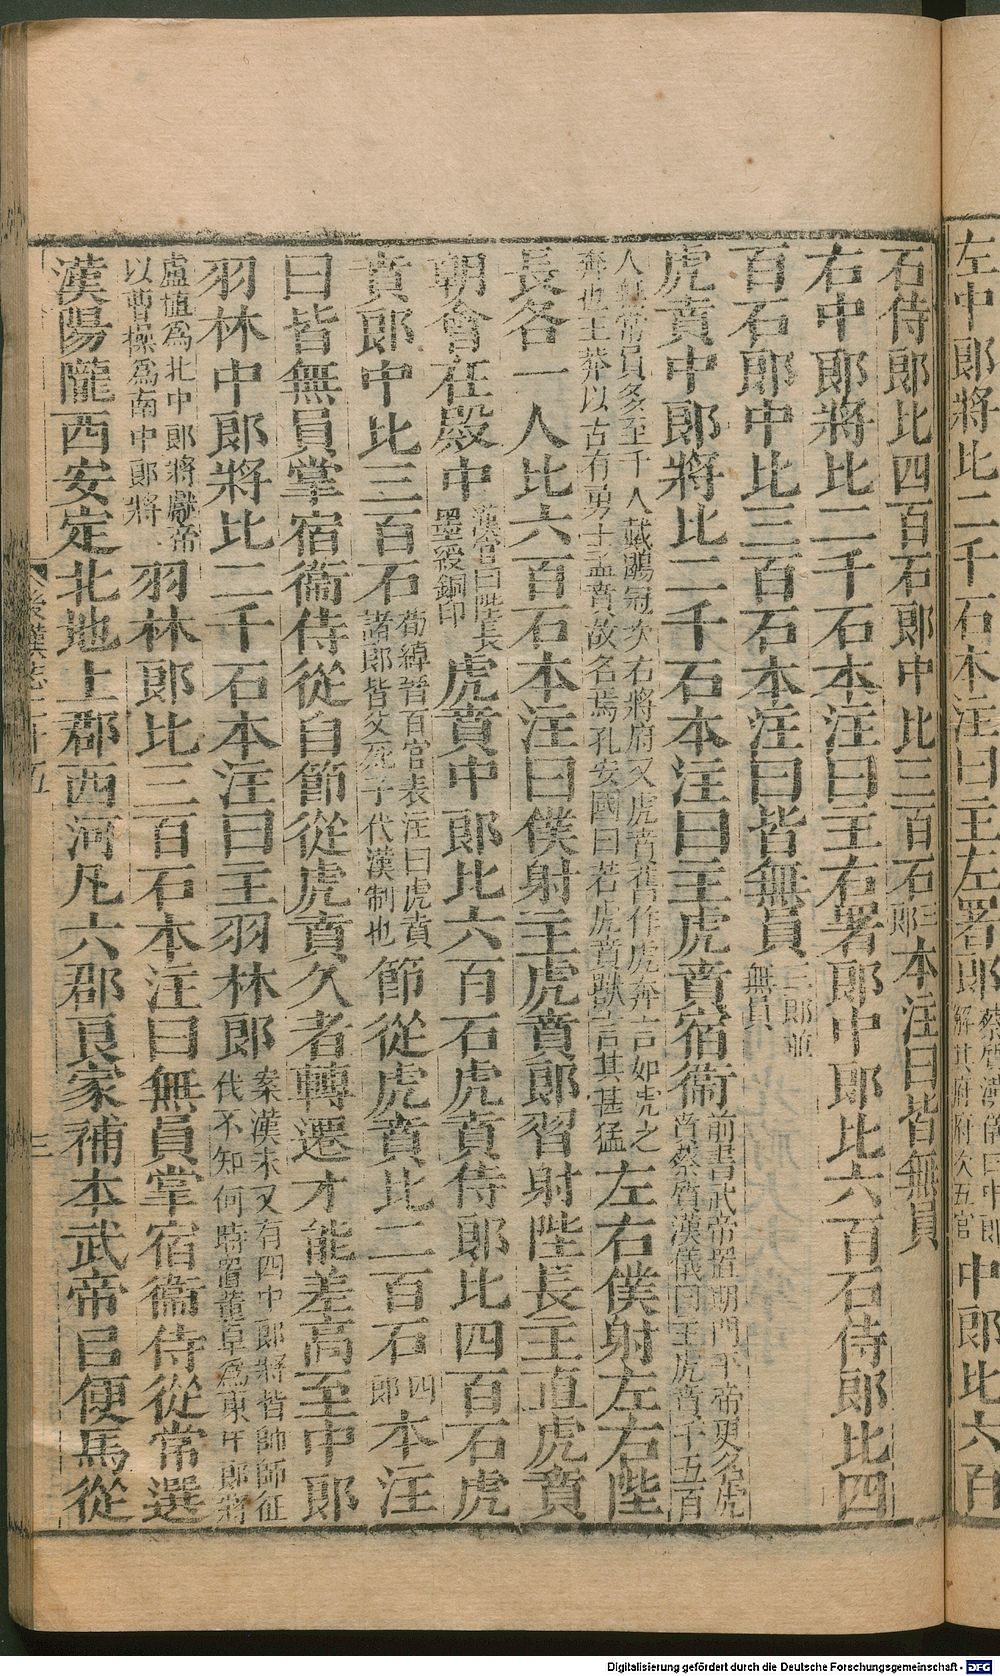 左中郎將比二千石本注曰主左署郎蔡質漢儀曰中郎解其府府次五官中郎比六百
石侍郎比四百石郎中比三百石三郎本注曰皆無員
右中郎將比二千石本注曰主右署郎中郎比六百石侍郎比四
百石郎中比三百石本注曰皆無員三郎並無員
虎賁中郎將比二千石本注曰主虎賁宿衞前書武帝置期門平帝更名虎賁蔡質漢儀曰主虎賁千五百
人無常員多至千人戴鶡冠次右將府又虎賁舊作虎奔言如虎之奔也王莽以古有勇士孟賁故名焉孔安國曰若虎賁獸言其甚猛左右僕射左右陛
長各一人比六百石本注曰僕射主虎賁郎習射陛長主直虎賁
朝會在殿中漢官曰陛長墨綬銅印虎賁中郎比六百石虎賁侍郎比四百石虎
賁郎中比三百石荀綽晉百官表注曰虎賁諸郎皆父死子代漢制也節從虎賁比二百石四郎本注
曰皆無員掌宿衞侍從自節從虎賁久者轉遷才能差高至中郎
羽林中郎將比二千石本注曰主羽林郎案漢末又有四中郎將皆帥師征伐不知何時置董卓爲東中郎將
盧植爲北中郎將獻帝以曹操爲南中郎將羽林郎比三百石本注曰無員掌宿衞侍從常選
漢陽隴西安定北地上郡西河凡六郡良家補本武帝㠯便馬從
後漢志二十五
三
Digitalisierung gefördert durch die Deutsche Forschungsgemeinschaft - DFG